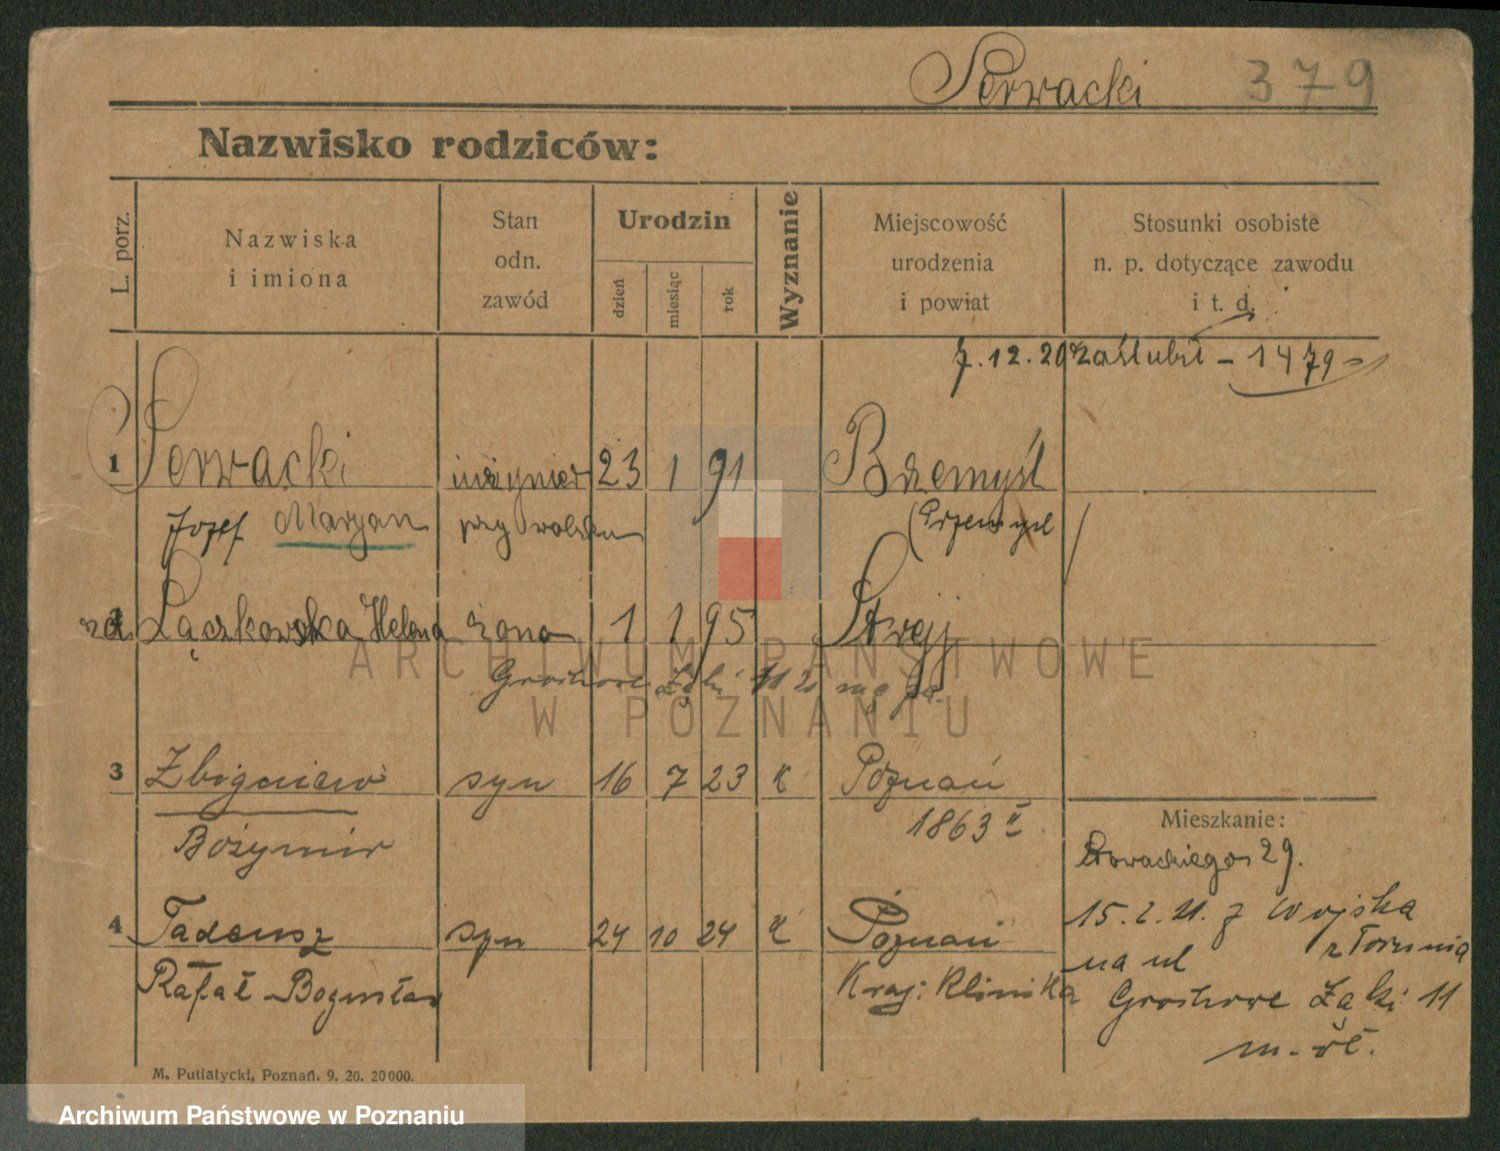 Serwacki 379
Nazwisko rodziców:
L. porz.
Nazwiska
i imiona
Stan
odn.
zawód
Urodzin
dzień
miesiąc
rok
Wyznanie
Miejscowość
urodzenia
i powiat
Stosunki osobiste
n. p. dotyczące zawodu
i t. d.
7.12.20 zaślubił - 1479
1 Serwacki inżynier 23 1 91 Przemyśl
Józef Maryan przy wojsku (Przemyśl)
2 Łączkowska Helena żona 1 1 95 Stryj
Grochowe Łąki 11
3 Zbigniew syn 16 7 23 k Poznań
Bożymir 1863 II.
4 Tadeusz syn 24 10 24 k Poznań
Rafał Bogusław Kraj: Klinika
Mieszkanie:
Słowackiego 29.
15.2.21. z wojska
z Torunia
na ul
Grochowe Łąki 11
M. Putiatycki, Poznań. 9. 20. 20000.
ARCHIWUM PAŃSTWOWE
W POZNANIU
Archiwum Państwowe w Poznaniu